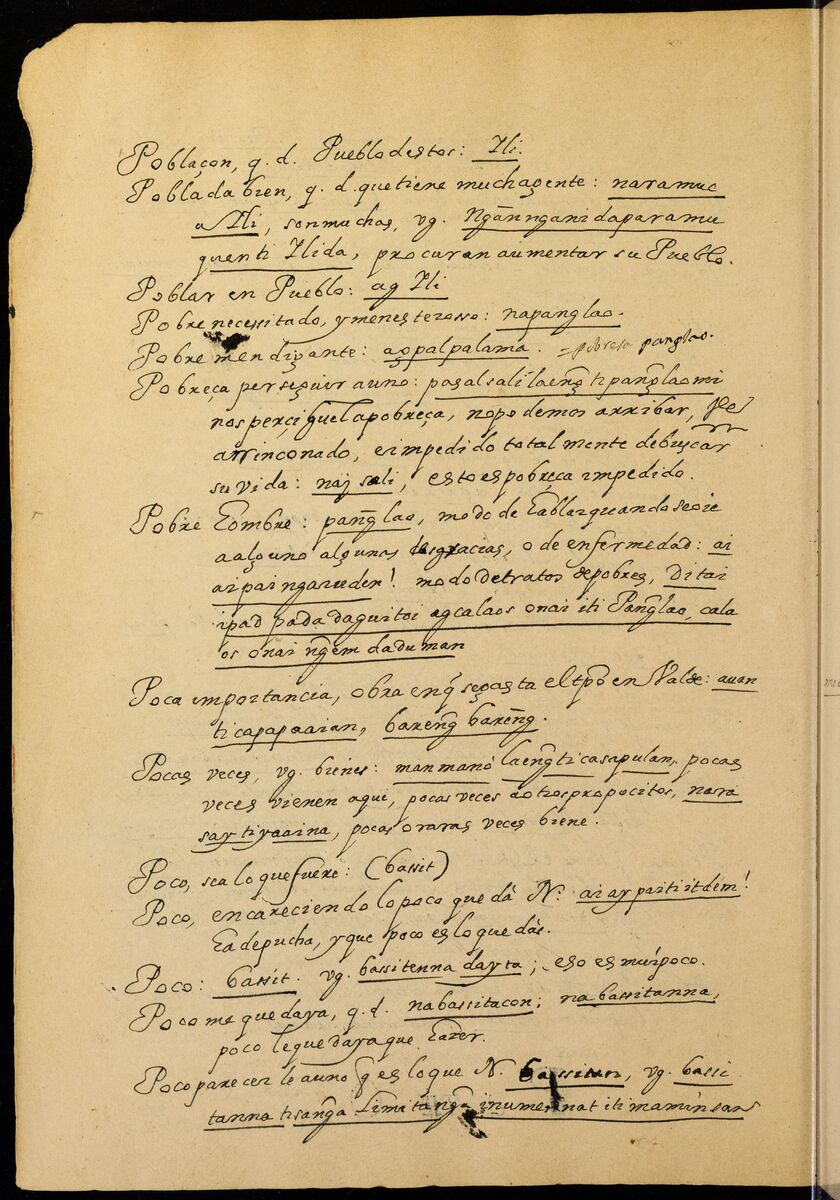 Poblaçon, q. d. Pueblo destos: Ili.
Poblada bien, q. d. que tiene mucha gente: naramuc
a Ili, son muchas, vg. Ngānngani da paramu
quen ti Ilida, procuran aumentar su Pueblo.
Poblar en Pueblo: ag Ili
Pobre necessitado, y menesterosso: napanglao.
Pobre mendigante: agpalpalama. = pobreza panglao.
Pobreça perseguir a uno: pagalsali laeng̃ ti pang̃lao mi
nos perçigue la pobreça, no podemos arribar,
arrinconado, e impedido totalmente de buscar
su vida: naj sali, esto es pobreça impedido.
Pobre Hombre: pang̃lao, modo de hablar quando se oie
a alguno algunas desgracias, o de enfermedad: ai
ai pai ngaruden! modo de tratos de pobres, Ditai
ipad pada daguitoi agcalaos onai iti Pang̃lao, cala
os onai ng̃em daduman
Poca importancia, obra en q̃ se gasta el tp̃o en Valde: auan
ti capapaaian, bareng̃ bareng̃.
Pocas veces, vg. bienes: manmanó laeng̃ ti casapulan, pocas
veces vienen aqui, pocas veces a otros propocitos, nara
say ti yaaina, pocas o raras veces biene.
Poco, sea lo que fuere: (bassit)
Poco, encareciendo lo poco que dá N: ai ay paiti itdem!
Ha de pucha, y que poco es lo que dás.
Poco: bassit. vg. bassitenna dayta; eso es mui poco.
Poco me quedaya, q. d. nabassitacon; na bassitanna,
poco le quedaya que hazer.
Poco parecerle a uno q̃ es lo que N. bassitan, vg. bassi
tanna ti sang̃a limitang̃a inumenna t iti maminsan